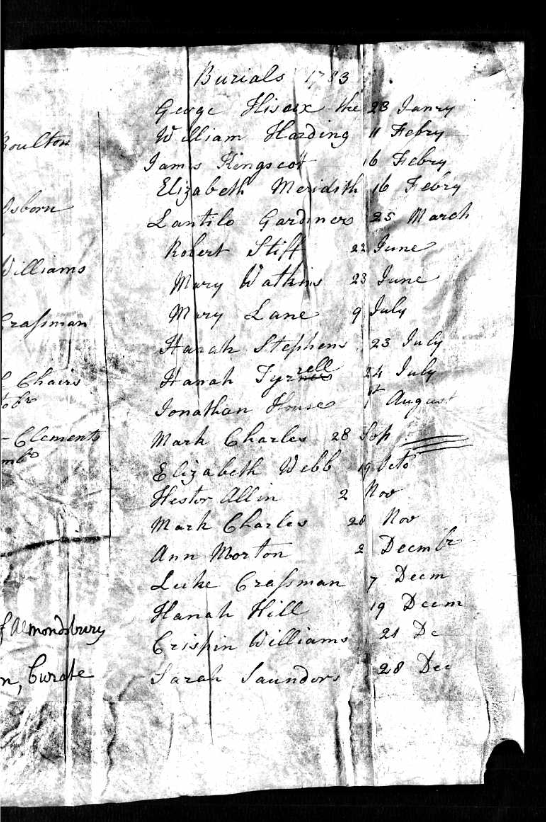 Burials 1783
George Hiscox the 23 Janry
William Harding 11 Febry
James Kingscot 16 Febry
Elizabeth Meridith 16 Febry
Lantilo Gardiner 25 March
Robert Stiff 22 June
Mary Watkins 23 June
Mary Lane 9 July
Hanah Stephens 23 July
Hanah Tyrrell 24 July
Jonathan House 1st August
Mark Charles 28 Sep
Elizabeth Webb 19 Octo
Hester Allin 2 Nov
Mark Charles 28 Nov
Ann Morton 2 Decmbr
Luke Craſsman 7 Decm
Hanah Hill 19 Decm
Crispin Williams 21 De
Sarah Saunders 28 Dec
oulton
osborn
Williams
Craſsman
Chairs
Clements
mbr
of Almondsbury
n, Curate